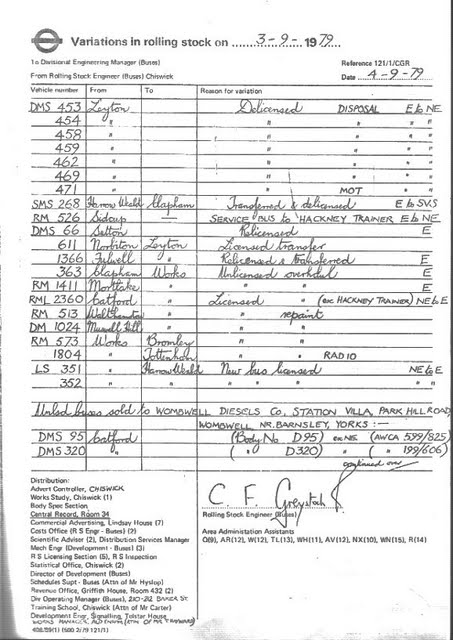 Variations in rolling stock on 3-9-1979
To Divisional Engineering Manager (Buses) Reference 121/1/CGR
From Rolling Stock Engineer (Buses) Chiswick Date 4-9-79
Vehicle number From To Reason for variation
DMS 453 Leyton Delicensed DISPOSAL E to NE
454 " " " " "
458 " " " " "
459 " " " " "
462 " " " " "
469 " " " " "
471 " " MOT " "
SMS 268 Harrow Weald Clapham Transferred & delicensed E to SVS
RM 526 Sidcup SERVICE BUS to HACKNEY TRAINER E to NE
DMS 66 Sutton Relicensed E
611 Norbiton Leyton Licensed transfer
1366 Fulwell " Relicensed & transferred E
363 Clapham Works Unlicensed overhaul E
RM 1411 Mortlake " " " E
RML 2360 Catford " Licensed " (ex HACKNEY TRAINER) NE to E
RM 513 Walthamstow " " repaint
DM 1024 Muswell Hill " " "
RM 573 Works Bromley " "
1804 " Tottenham " " RADIO
LS 351 Harrow Weald New bus licensed NE to E
352 " " " " " " "
Unlsd buses sold to WOMBWELL DIESELS Co, STATION VILLA, PARK HILL ROAD
WOMBWELL NR. BARNSLEY, YORKS :—
DMS 95 Catford (Body No D95) ex NE (AWCA 599/825)
DMS 320 " ( " D320) " ( " 199/606)
continued over
Distribution:
Advert Controller, CHISWICK
Works Study, Chiswick (1)
Body Spec Section
Central Record, Room 34
Commercial Advertising, Lindsay House (7)
Costs Office (R S Engr - Buses) (2)
Scientific Adviser (2), Distribution Services Manager
Mech Engr (Development - Buses) (3)
R S Licensing Section (5), R S Inspection
Statistical Office, Chiswick (2)
Director of Development (Buses)
Schedules Supt - Buses (Attn of Mr Hyslop)
Revenue Office, Griffith House, Room 432 (2)
Div Operating Manager (Buses), 210-212 BAKER ST
Training School, Chiswick (Attn of Mr Carter)
Development Engr, Signalling, Telstar House
WORKS MANAGER, ALDENHAM
408/09(1) (500 2/79 121/1)
C. F. Greystock
Rolling Stock Engineer (Buses)
Area Administration Assistants
Q(9), AR(12), W(12), TL(13), WH(11), AV(12), NX(10), WN(15), R(14)